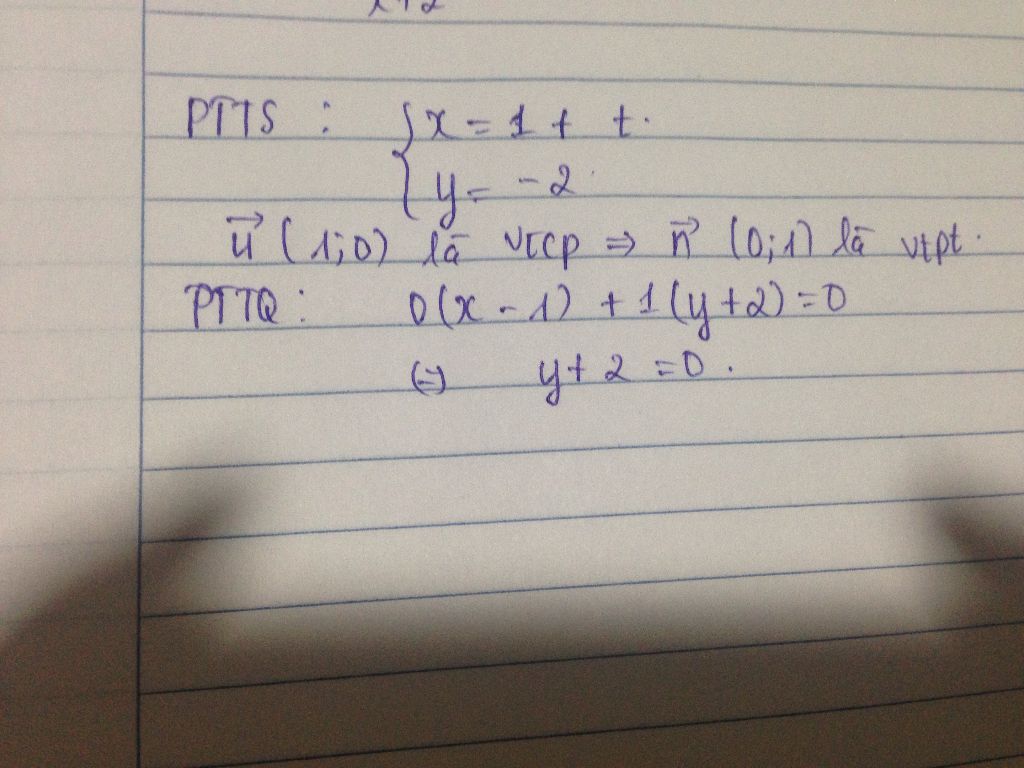 PTTS : { x = 1 + t.
y = -2
u→ (1;0) là vtcp ⇒ n→ (0;1) là vtpt.
PTTQ : 0(x - 1) + 1(y + 2) = 0
(=) y + 2 = 0.